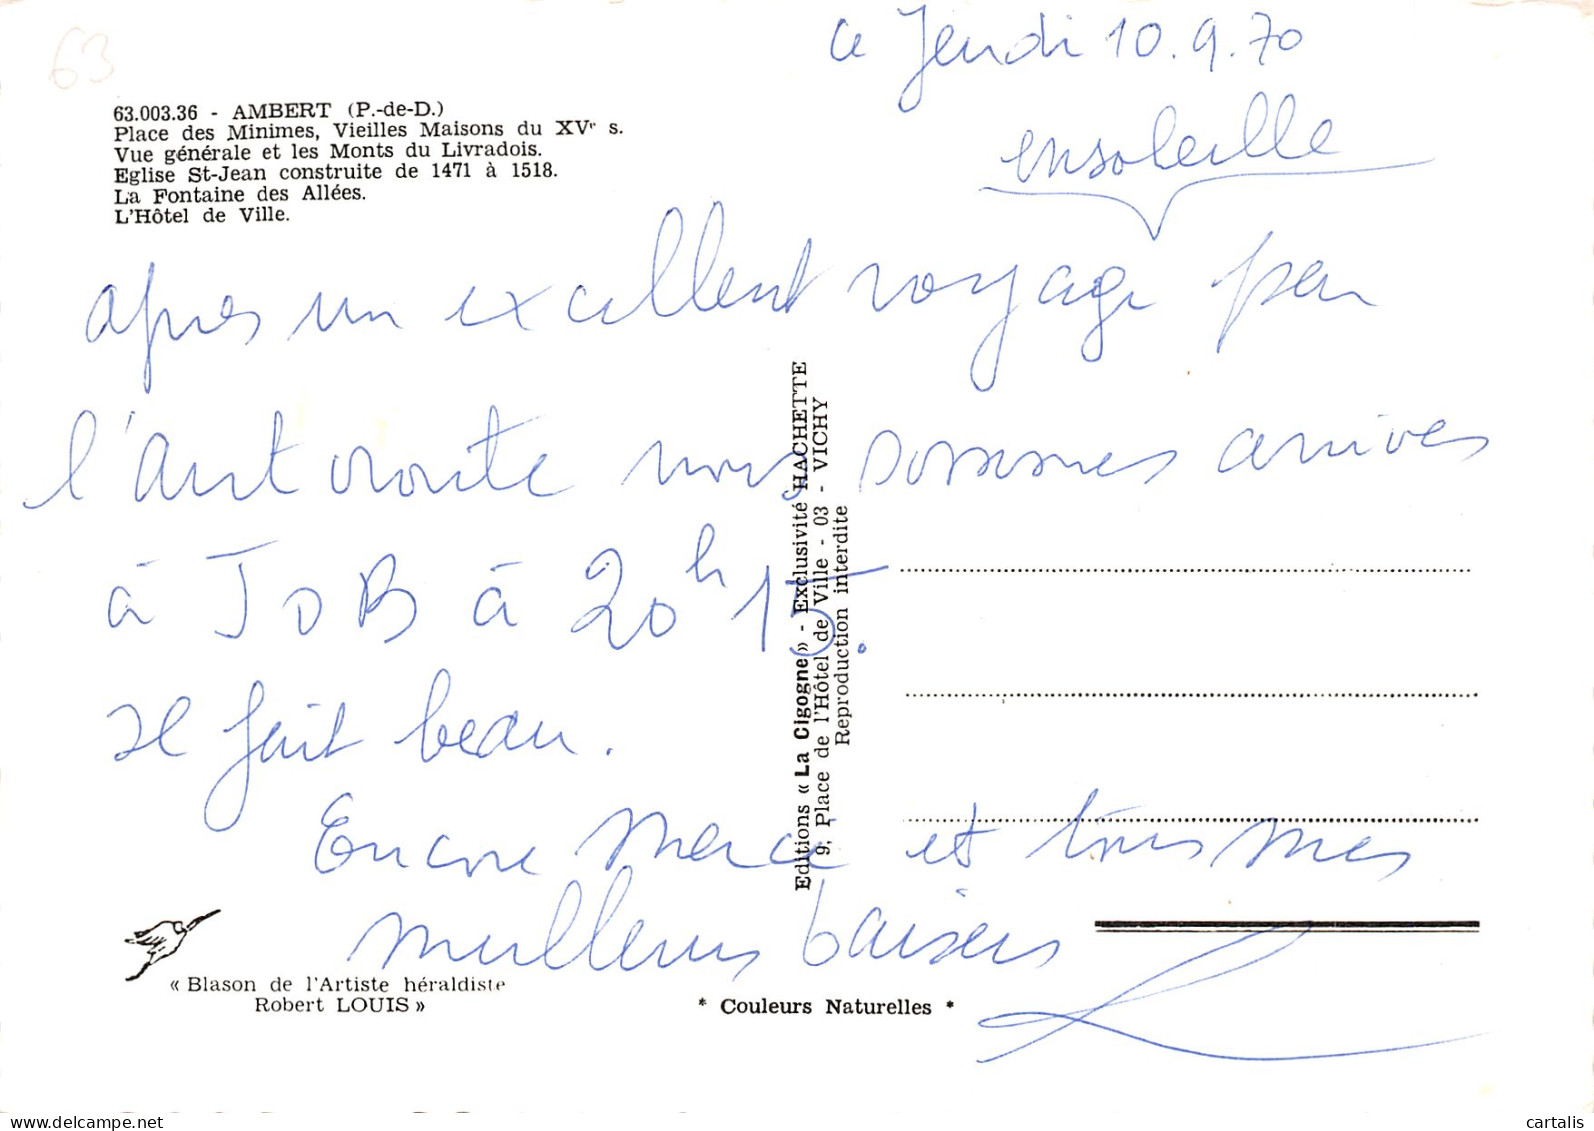 63
ce Jeudi 10.9.70
63.003.36 - AMBERT (P.-de-D.)
Place des Minimes, Vieilles Maisons du XVe s.
Vue générale et les Monts du Livradois.
Eglise St-Jean construite de 1471 à 1518.
La Fontaine des Allées.
L'Hôtel de Ville.
ensoleille
après un excellent voyage par
l'autoroute nous sommes arrives
à JOB à 20h15.
Il fait beau.
Encore Merci et tous mes
meilleurs baisers
Editions « La Cigogne » - Exclusivité HACHETTE
9, Place de l'Hôtel de Ville - 03 - VICHY
Reproduction interdite
« Blason de l'Artiste héraldiste
Robert LOUIS »
* Couleurs Naturelles *
delcampe.net
cartalis